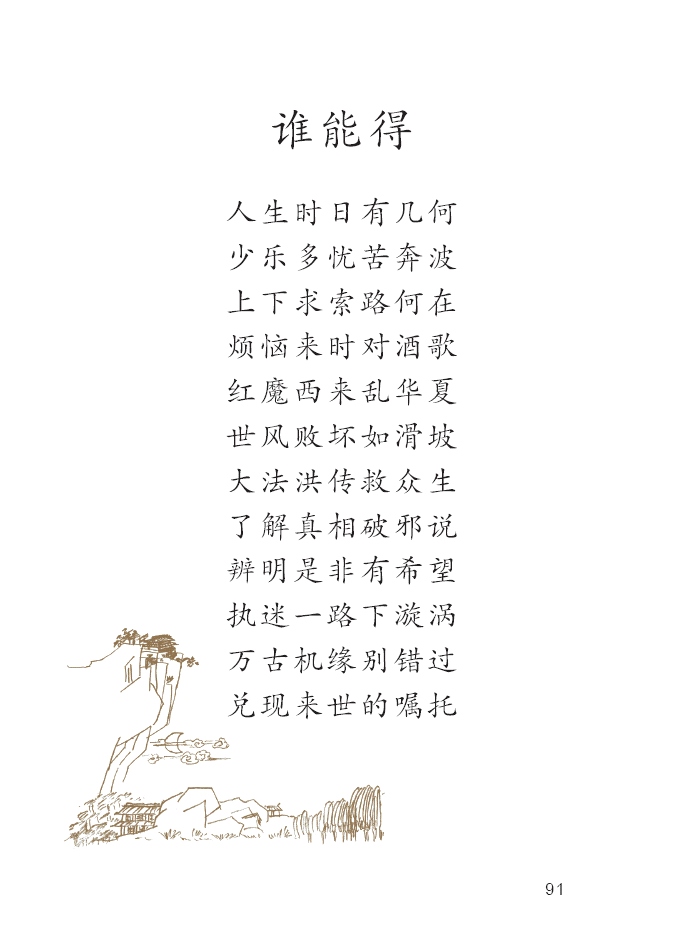 谁能得
人生时日有几何
少乐多忧苦奔波
上下求索路何在
烦恼来时对酒歌
红魔西来乱华夏
世风败坏如滑坡
大法洪传救众生
了解真相破邪说
辨明是非有希望
执迷一路下漩涡
万古机缘别错过
兑现来世的嘱托
91